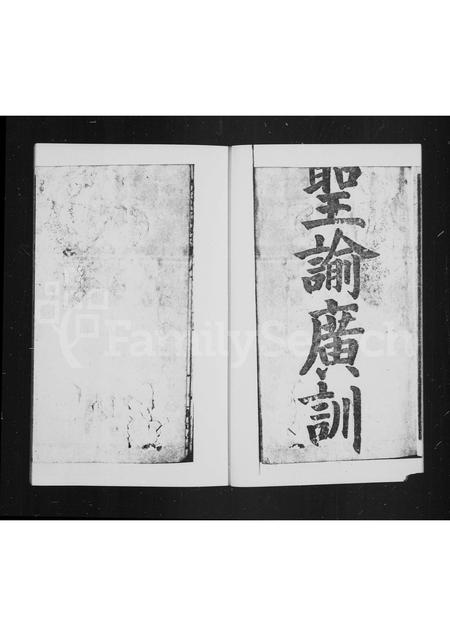 聖諭廣訓
FamilySearch